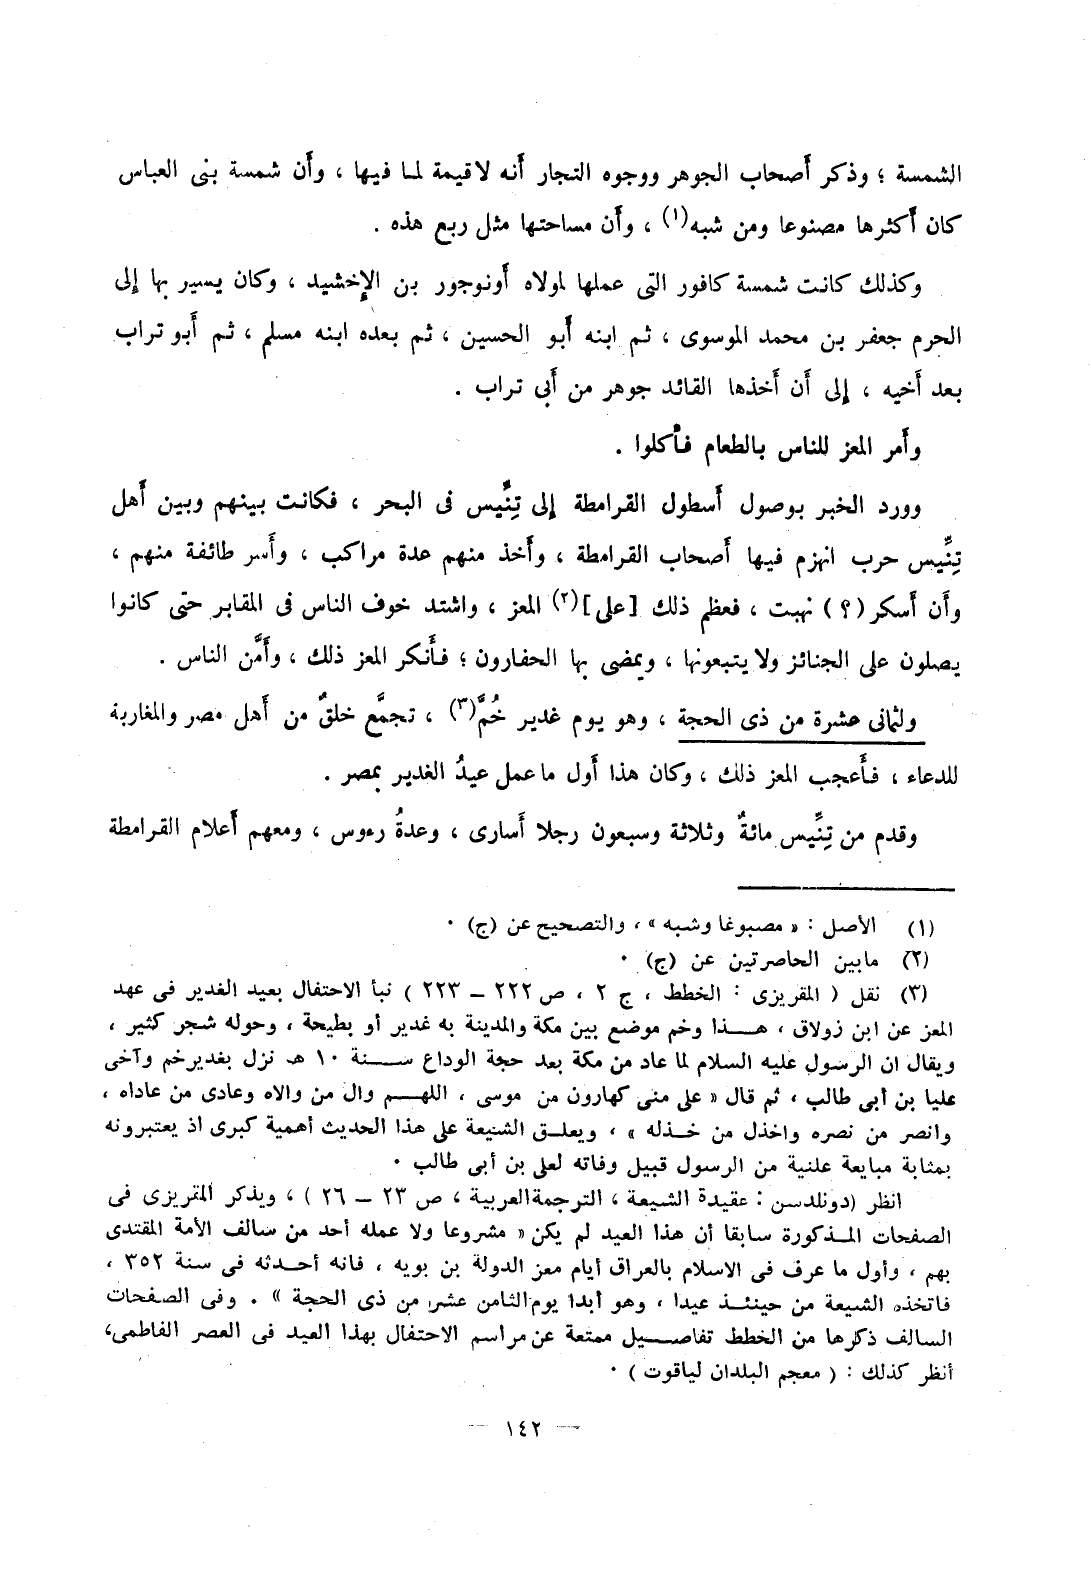 الشمسة ؛ وذكر أصحاب الجوهر ووجوه التجار أنه لاقيمة لما فيها ، وأن شمسة بنى العباس
كان أكثرها مصنوعا ومن شبه(١) ، وأن مساحتها مثل ربع هذه .
وكذلك كانت شمسة كافور التى عملها لمولاه أونوجور بن الإخشيد ، وكان يسير بها إلى
الحرم جعفر بن محمد الموسوى ، ثم ابنه أبو الحسين ، ثم بعده ابنه مسلم ، ثم أبو تراب
بعد أخيه ، إلى أن أخذها القائد جوهر من أبى تراب .
وأمر المعز للناس بالطعام فأكلوا .
وورد الخبر بوصول أسطول القرامطة إلى تِنِّيس فى البحر ، فكانت بينهم وبين أهل
تِنِّيس حرب انهزم فيها أصحاب القرامطة ، وأخذ منهم عدة مراكب ، وأسر طائفة منهم ،
وأن أسكر (؟) نهبت ، فعظم ذلك [على](٢) المعز ، واشتد خوف الناس فى المقابر حتى كانوا
يصلون على الجنائز ولا يتبعونها ، ويمضى بها الحفارون ؛ فأنكر المعز ذلك ، وأمَّن الناس .
ولثمانى عشرة من ذى الحجة ، وهو يوم غدير خُمَّ(٣) ، تجمَّع خلقٌ من أهل مصر والمغاربة
للدعاء ، فأعجب المعز ذلك ، وكان هذا أول ما عمل عيدُ الغدير بمصر .
وقدم من تِنِّيس مائةٌ وثلاثة وسبعون رجلا أسارى ، وعدةُ رءوس ، ومعهم أعلام القرامطة
(١) الأصل : « مصبوغا وشبه » ، والتصحيح عن (ج) ·
(٢) مابين الحاصرتين عن (ج) ·
(٣) نقل ( المقريزى : الخطط ، ج ٢ ، ص ٢٢٢ – ٢٢٣ ) نبأ الاحتفال بعيد الغدير فى عهد
المعز عن ابن زولاق ، هــذا وخم موضع بين مكة والمدينة به غدير أو بطيحة ، وحوله شجر كثير ،
ويقال ان الرسول عليه السلام لما عاد من مكة بعد حجة الوداع ســنة ١٠ هـ نزل بغديرخم وآخى
عليا بن أبى طالب ، ثم قال « على منى كهارون من موسى ، اللهــم وال من والاه وعادى من عاداه ،
وانصر من نصره واخذل من خــذله » ، ويعلــق الشيعة على هذا الحديث أهمية كبرى اذ يعتبرونه
بمثابة مبايعة علنية من الرسول قبيل وفاته لعلى بن أبى طالب ·
انظر (دونلدسن : عقيدة الشيعة ، الترجمة العربية ، ص ٢٣ – ٢٦ ) ، ويذكر المقريزى فى
الصفحات المــذكورة سابقا أن هذا العيد لم يكن « مشروعا ولا عمله أحد من سالف الأمة المقتدى
بهم ، وأول ما عرف فى الاسلام بالعراق أيام معز الدولة بن بويه ، فانه أحــدثه فى سنة ٣٥٢ ،
فاتخذه الشيعة من حينئــذ عيدا ، وهو أبدا يوم الثامن عشر من ذى الحجة » . وفى الصفحات
السالف ذكرها من الخطط تفاصــيل ممتعة عن مراسم الاحتفال بهذا العيد فى العصر الفاطمى،
أنظر كذلك : ( معجم البلدان لياقوت ) ·
— ١٤٢ —